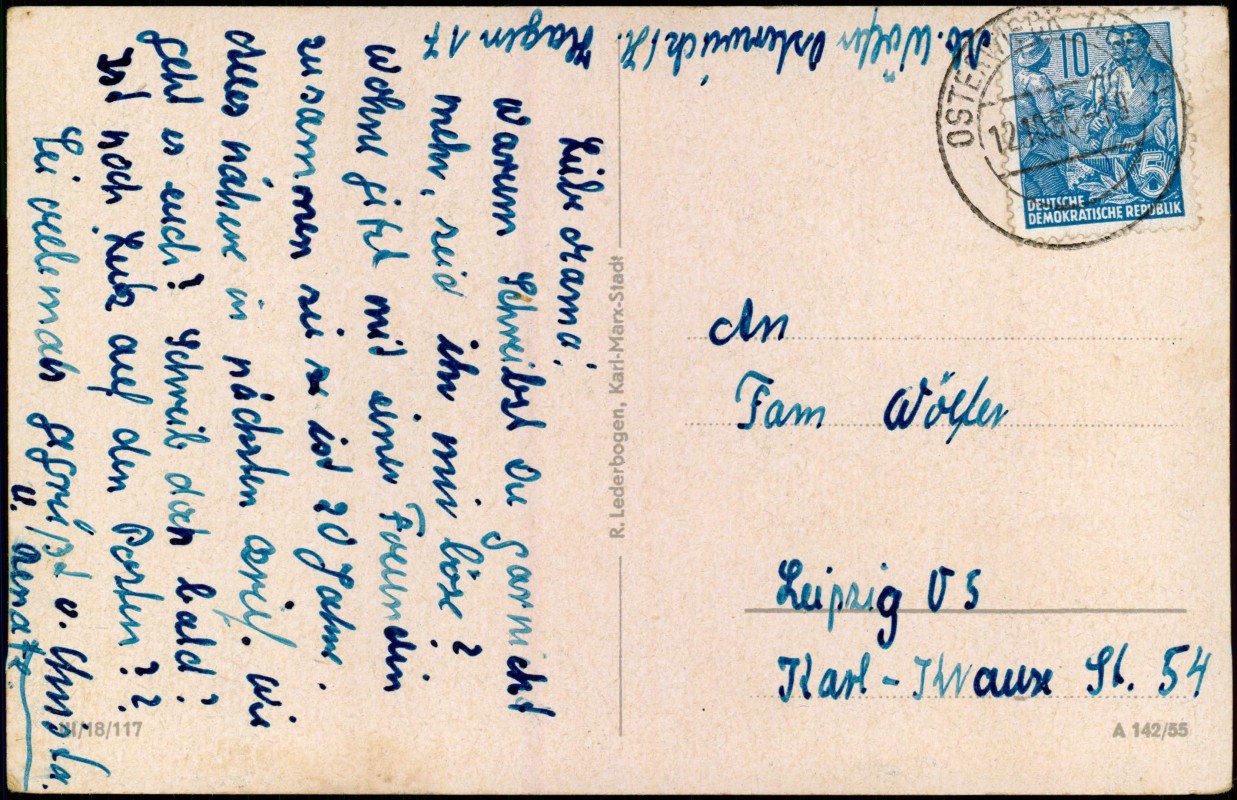 Ab. Wölfer Osterwieck/H. Hagen 17
Liebe Mama!
Warum Schreibst Du garnicht
mehr, seid ihr mir böse?
Wohne jetzt mit einer Freundin
zusammen sie ist 20 Jahre.
Alles nähere im nächsten Brief. Wie
geht es euch? Schreib doch bald?
Ist noch Lutz auf den Posten??
Sei vielemals gegrüßt v. Christa.
u. Renate
OSTERWIECK
12.10.56
10
5
DEUTSCHE
DEMOKRATISCHE REPUBLIK
An
Fam Wölfer
Leipzig O 5
Karl-Krause St. 54
R. Lederbogen, Karl-Marx-Stadt
III/18/117
A 142/55